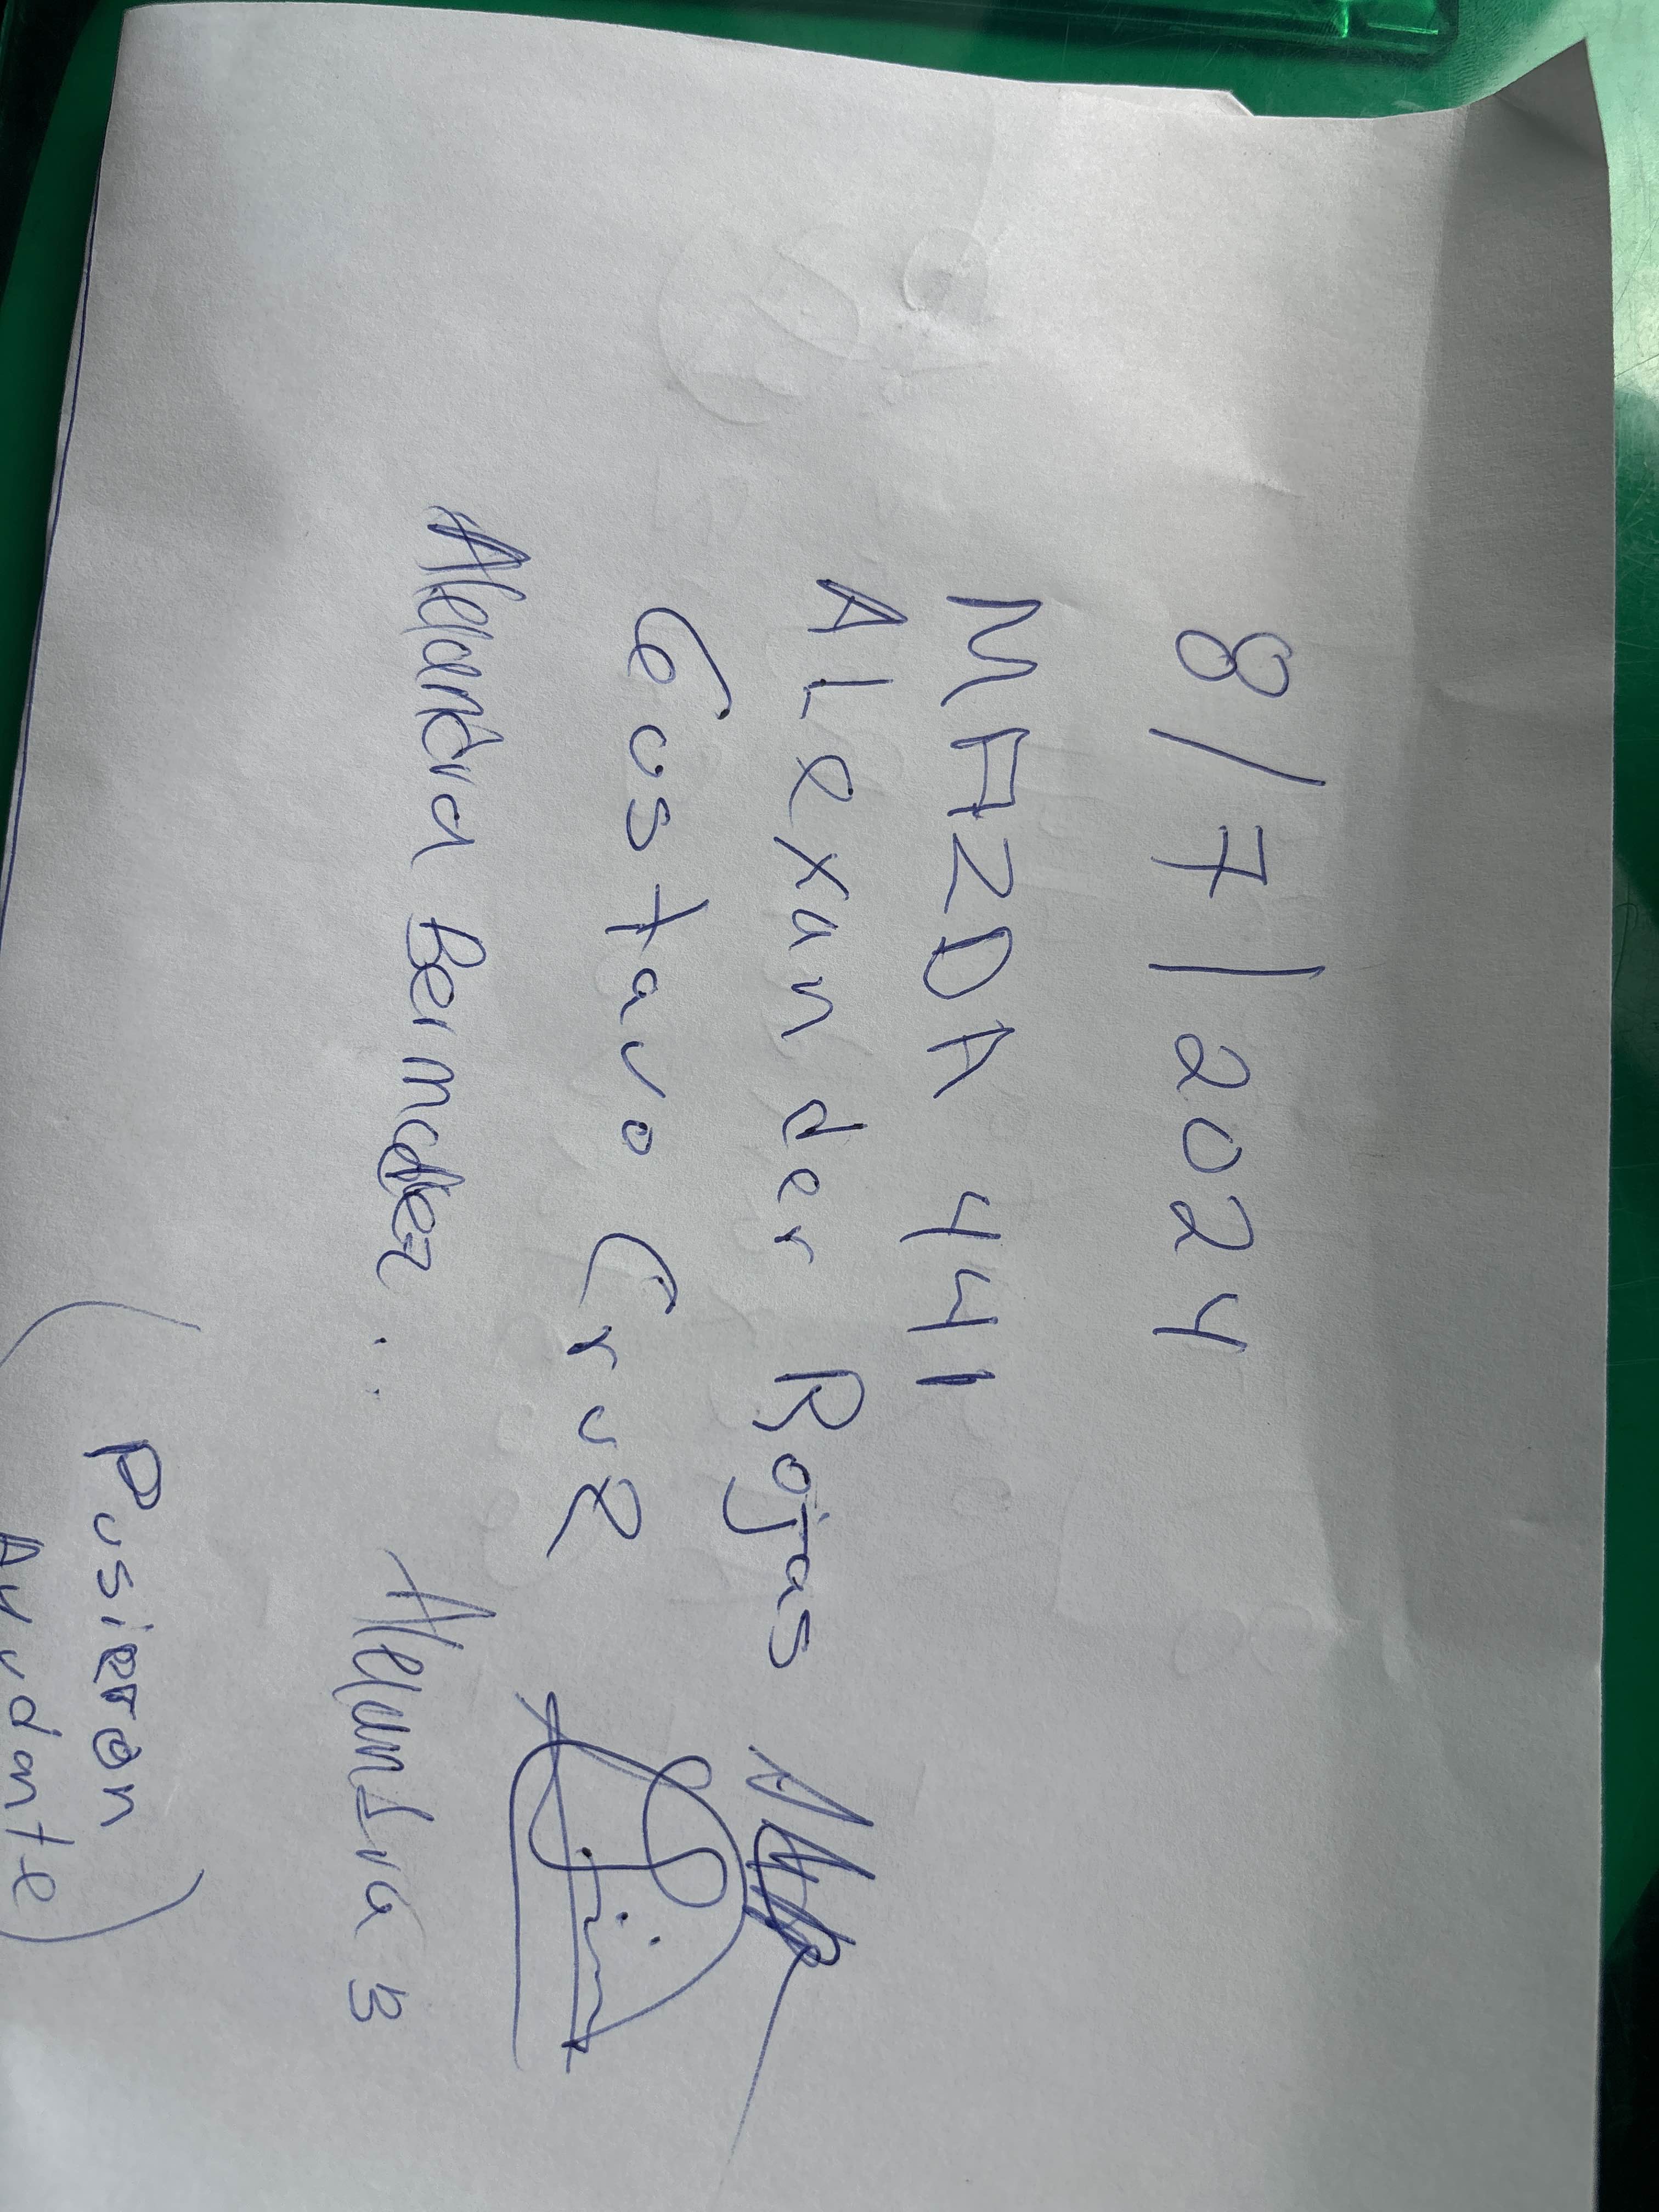 8/7/2024
MAZDA 441
ALexander Rojas
Gustavo Cruz
Alejandra Bermudez : Alejandra B
(Pusieron
Ayudante)